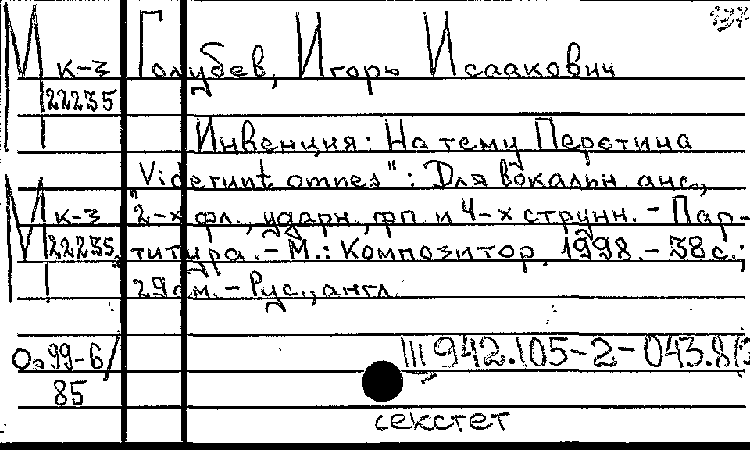 М к-3 Голубев, Игорь Исаакович
22235
Инвенция: На тему Перотина
Viderunt omnes": Для вокальн. анс.,
М к-3 "2-х фл., ударн., фп. и 4-х струнн. - Пар-
22235 титура. - М.: Композитор, 1998. - 38 с.;
29 см. - Рус., англ.
Оа 99-6/ III 942.105-2-043.8(
85
секстет